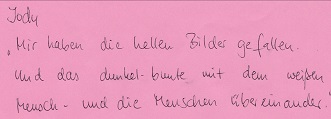 Jody
„Mir haben die hellen Bilder gefallen.
Und das dunkel-bunte mit dem weißen
Mensch - und die Menschen übereinander."